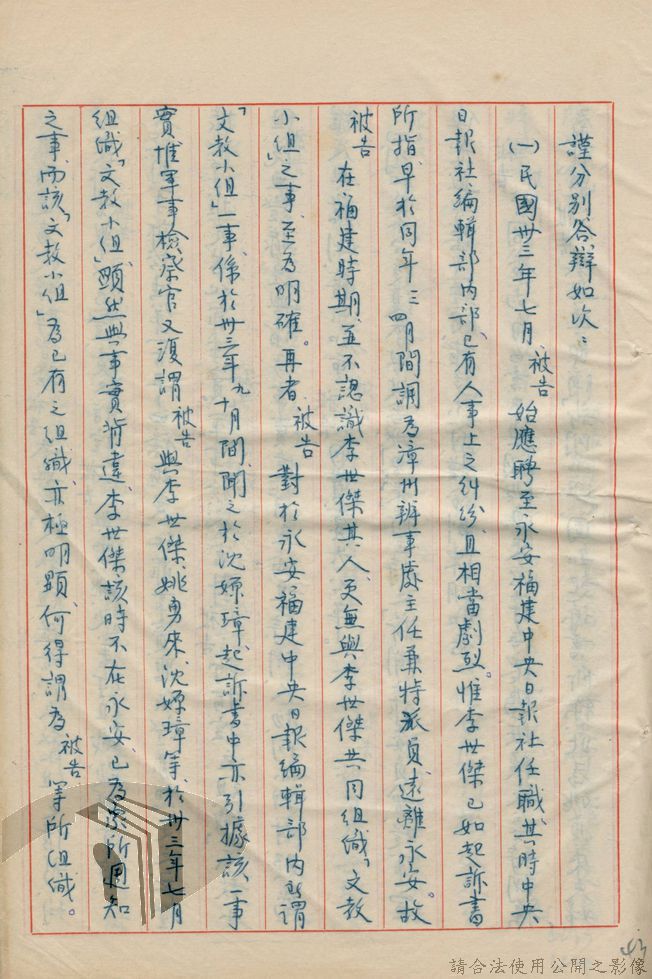 謹分別答辯如次：
㈠民國卅三年七月、被告始應聘至永安福建中央日報社任職、其時中央
日報社編輯部內部、已有人事上之糾紛、且相當劇烈。惟李世傑已如起訴書
所指、早於同年三、四月間調為漳州辦事處主任兼特派員、遠離永安。故
被告在福建時期、並不認識李世傑其人、更無與李世傑共同組織「文教
小組」之事、至為明確。再者、被告對於永安福建中央日報編輯部內所謂
「文教小組」一事、係於卅三年九、十月間、聞之於沈嫄璋、起訴書中亦引據該一事
實、惟軍事檢察官又復謂被告與李世傑、姚勇來、沈嫄璋等、於卅三年七月
組織「文教小組」、顯然與事實背違、李世傑該時不在永安、已為眾所週知
之事、而該「文教小組」為已有之組織、亦極明顯、何得謂為被告等所組織。
請合法使用公開之影像